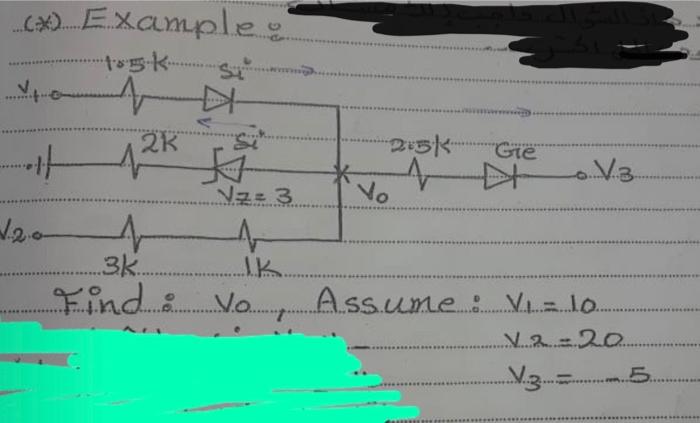 (*) Example:
1.5k Si
V1
2k Si 2.5k Ge V3
Vz = 3 Vo
V2
3k 1k
Find: Vo, Assume: V1 = 10
V2 = 20
V3 = -5